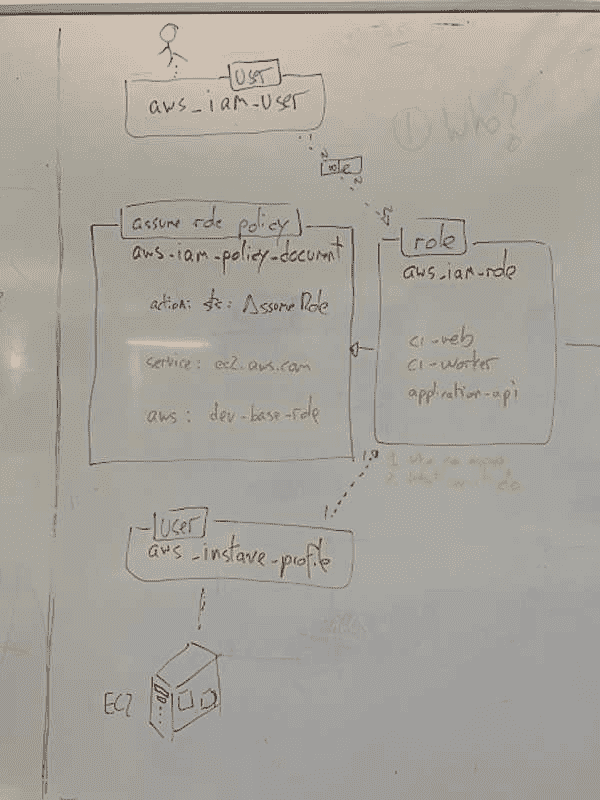 User
aws_iam-User
① Who?
role
assume role policy
aws-iam-policy-document
action: sts: AssumeRole
service: ec2.aws.com
aws: dev-base-role
role
aws_iam-role
ci-web
ci-worker
application-api
1
2
User
aws_instave-profile
EC2